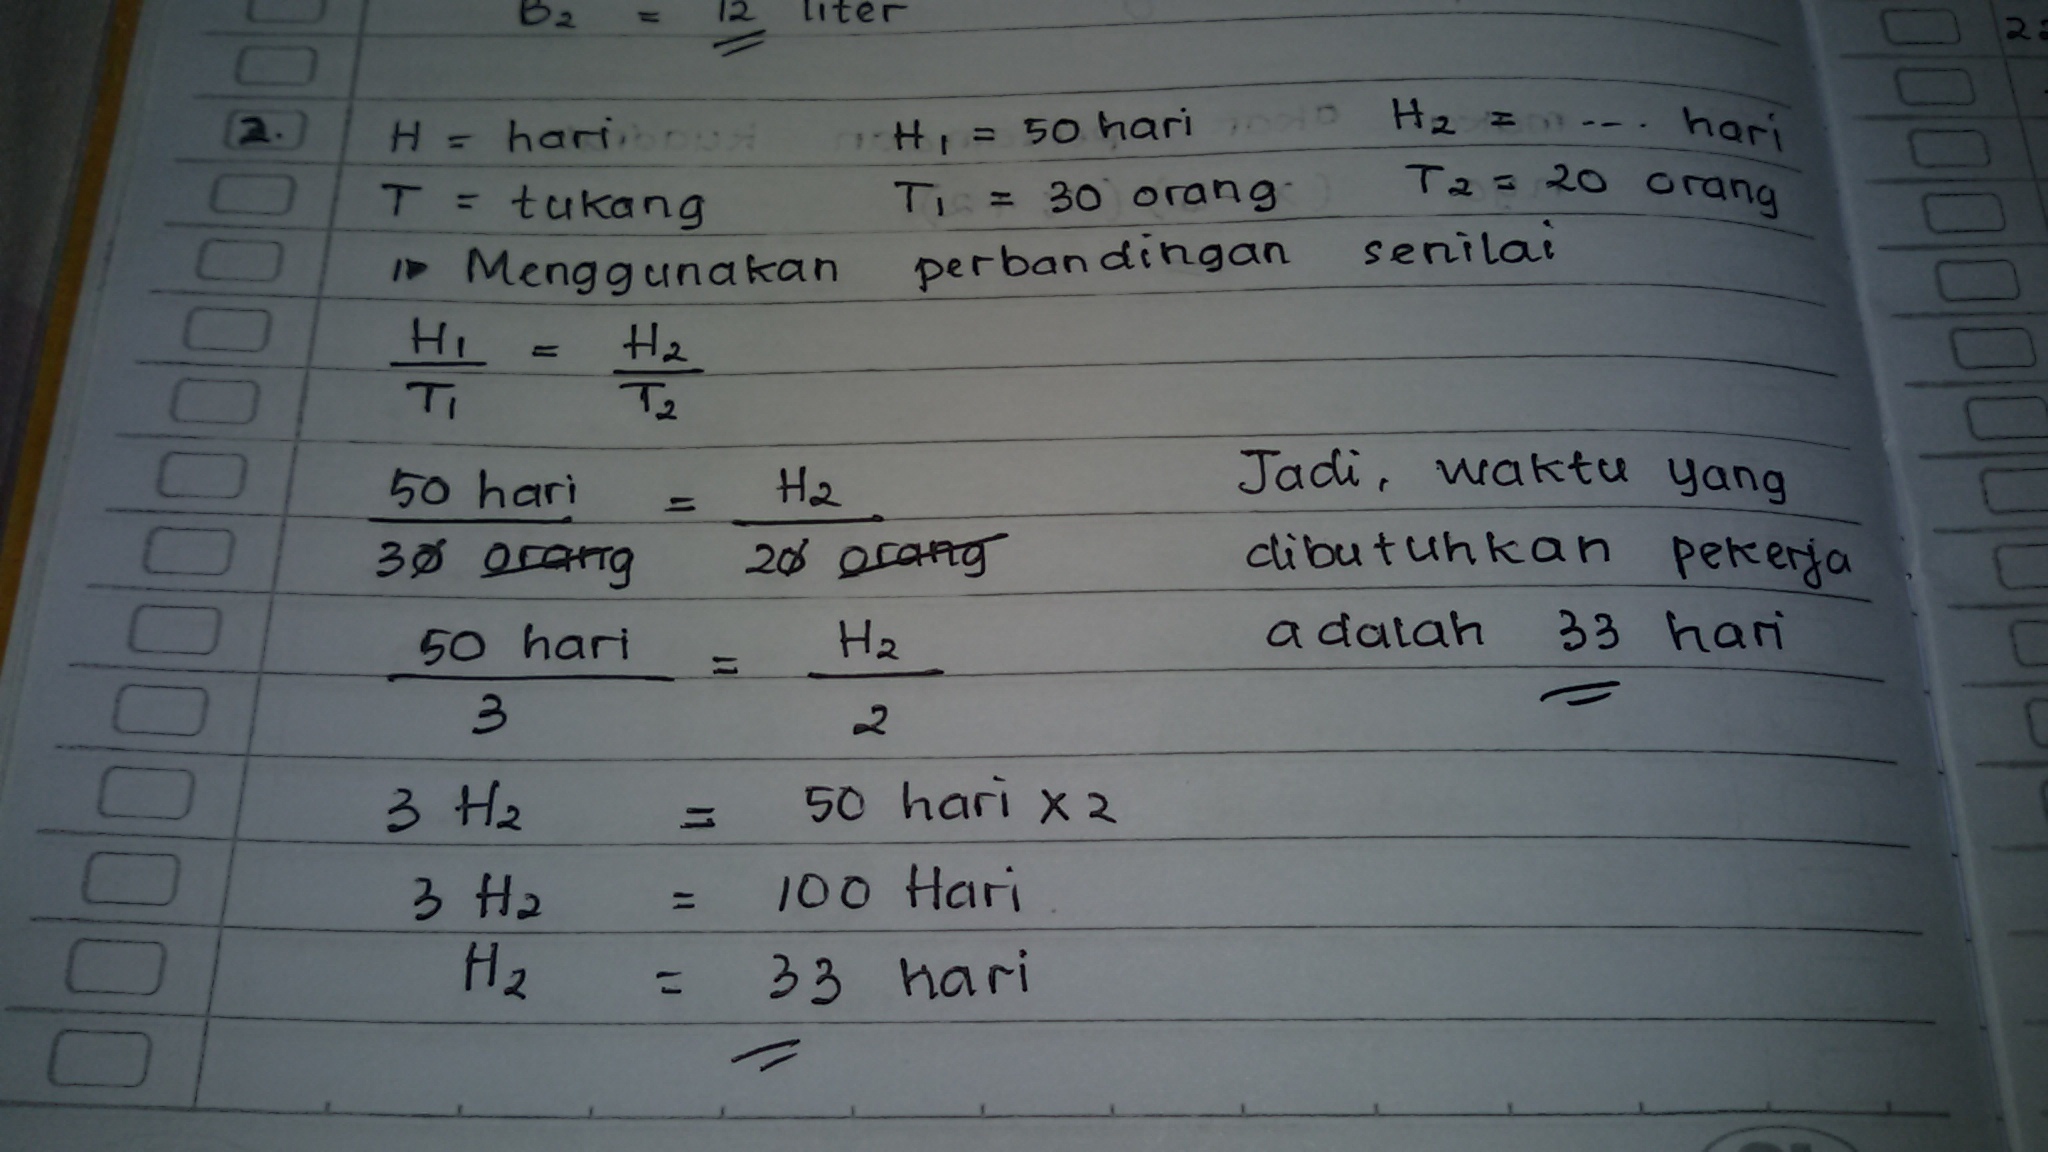 B2 = 12 liter
2. H = hari H1 = 50 hari H2 = .... hari
T = tukang T1 = 30 orang T2 = 20 orang
Menggunakan perbandingan senilai
H1 = H2
T1 T2
50 hari = H2
30 orang 20 orang
50 hari = H2
3 2
3 H2 = 50 hari x 2
3 H2 = 100 Hari
H2 = 33 hari
Jadi, waktu yang
dibutuhkan pekerja
adalah 33 hari